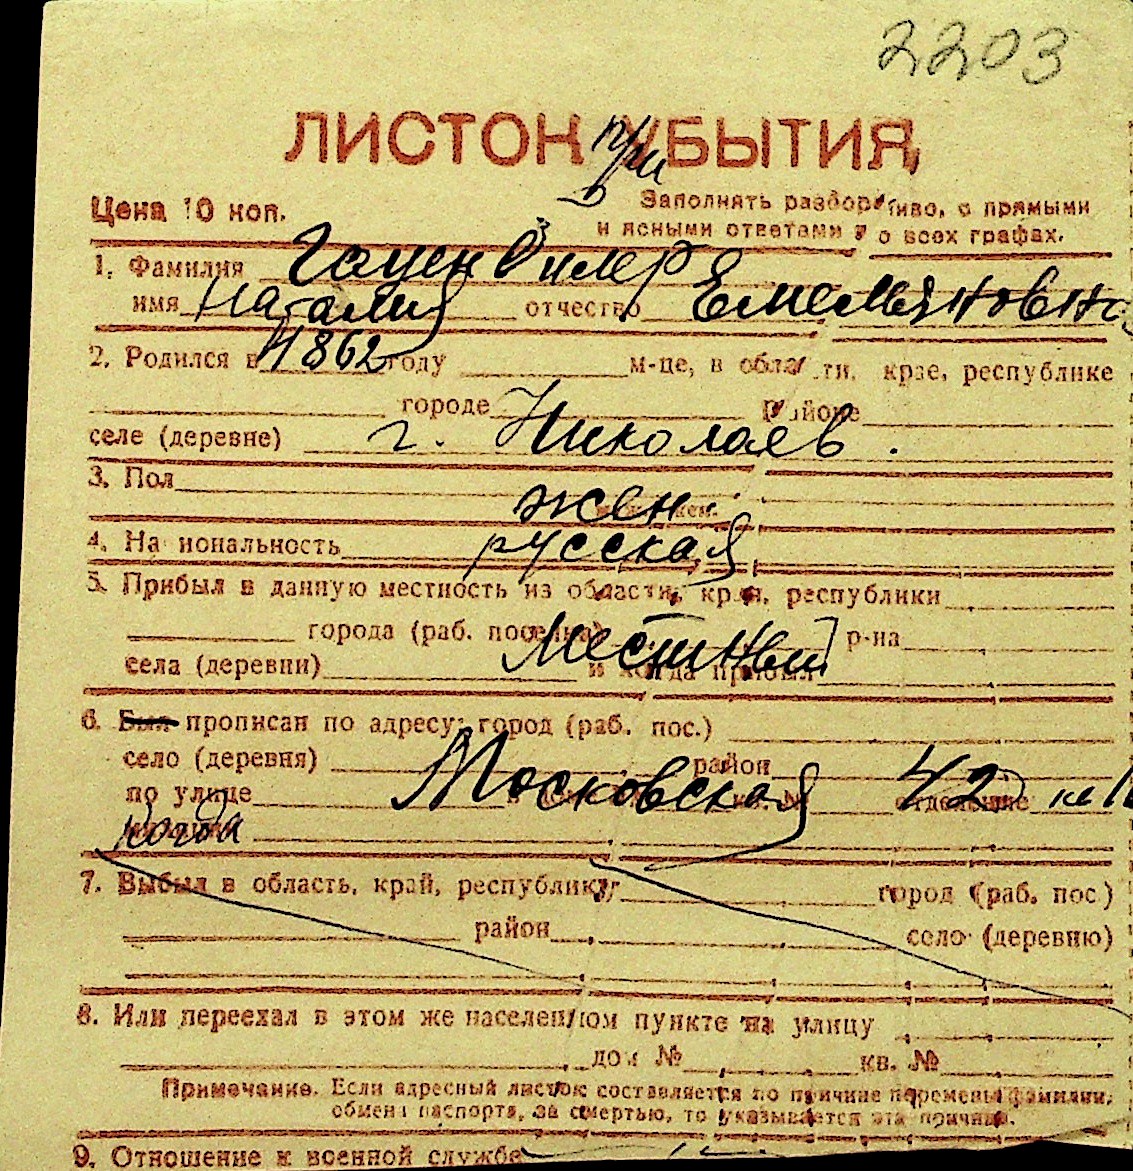 2203
ЛИСТОК УБЫТИЯ
при
Цена 10 коп.
Заполнять разборчиво, с прямыми
и ясными ответами о всех графах.
1. Фамилия
имя Наталия отчество Емельяновна
2. Родился в 1862 году м-це, в области, крае, республике
городе районе
селе (деревне) г. Николаев.
3. Пол жен
4. Национальность русская
5. Прибыл в данную местность из области, края, республики
города (раб. поселка) р-на
села (деревни) Местный и когда прибыл
6. Был прописан по адресу: город (раб. пос.)
село (деревня) район
по улице Московская 42 отделение
7. Выбыл в область, край, республику город (раб. пос)
район село (деревню)
8. Или переехал в этом же населенном пункте на улицу
дом № кв. №
Примечание. Если адресный листок составляется по причине перемены фамилии,
обмена паспорта, за смертью, то указывается эта причина.
9. Отношение к военной службе